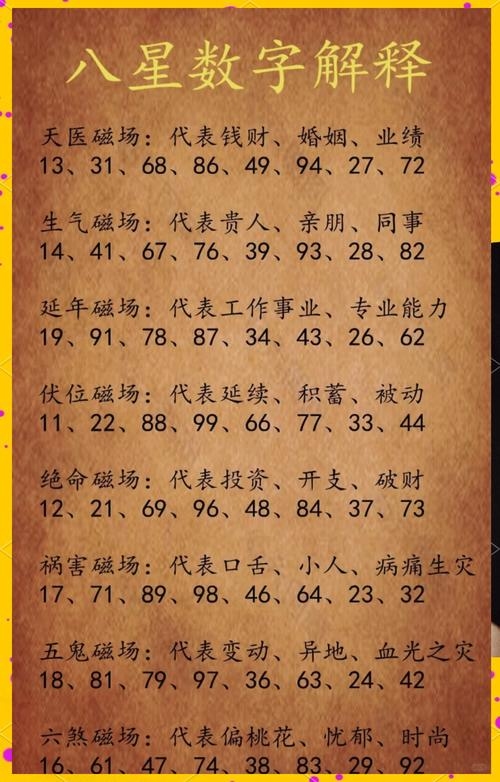 八星数字解释
天医磁场：代表钱财、婚姻、业绩
13、31、68、86、49、94、27、72
生气磁场：代表贵人、亲朋、同事
14、41、67、76、39、93、28、82
延年磁场：代表工作事业、专业能力
19、91、78、87、34、43、26、62
伏位磁场：代表延续、积蓄、被动
11、22、88、99、66、77、33、44
绝命磁场：代表投资、开支、破财
12、21、69、96、48、84、37、73
祸害磁场：代表口舌、小人、病痛生灾
17、71、89、98、46、64、23、32
五鬼磁场：代表变动、异地、血光之灾
18、81、79、97、36、63、24、42
六煞磁场：代表偏桃花、忧郁、时尚
16、61、47、74、38、83、29、92